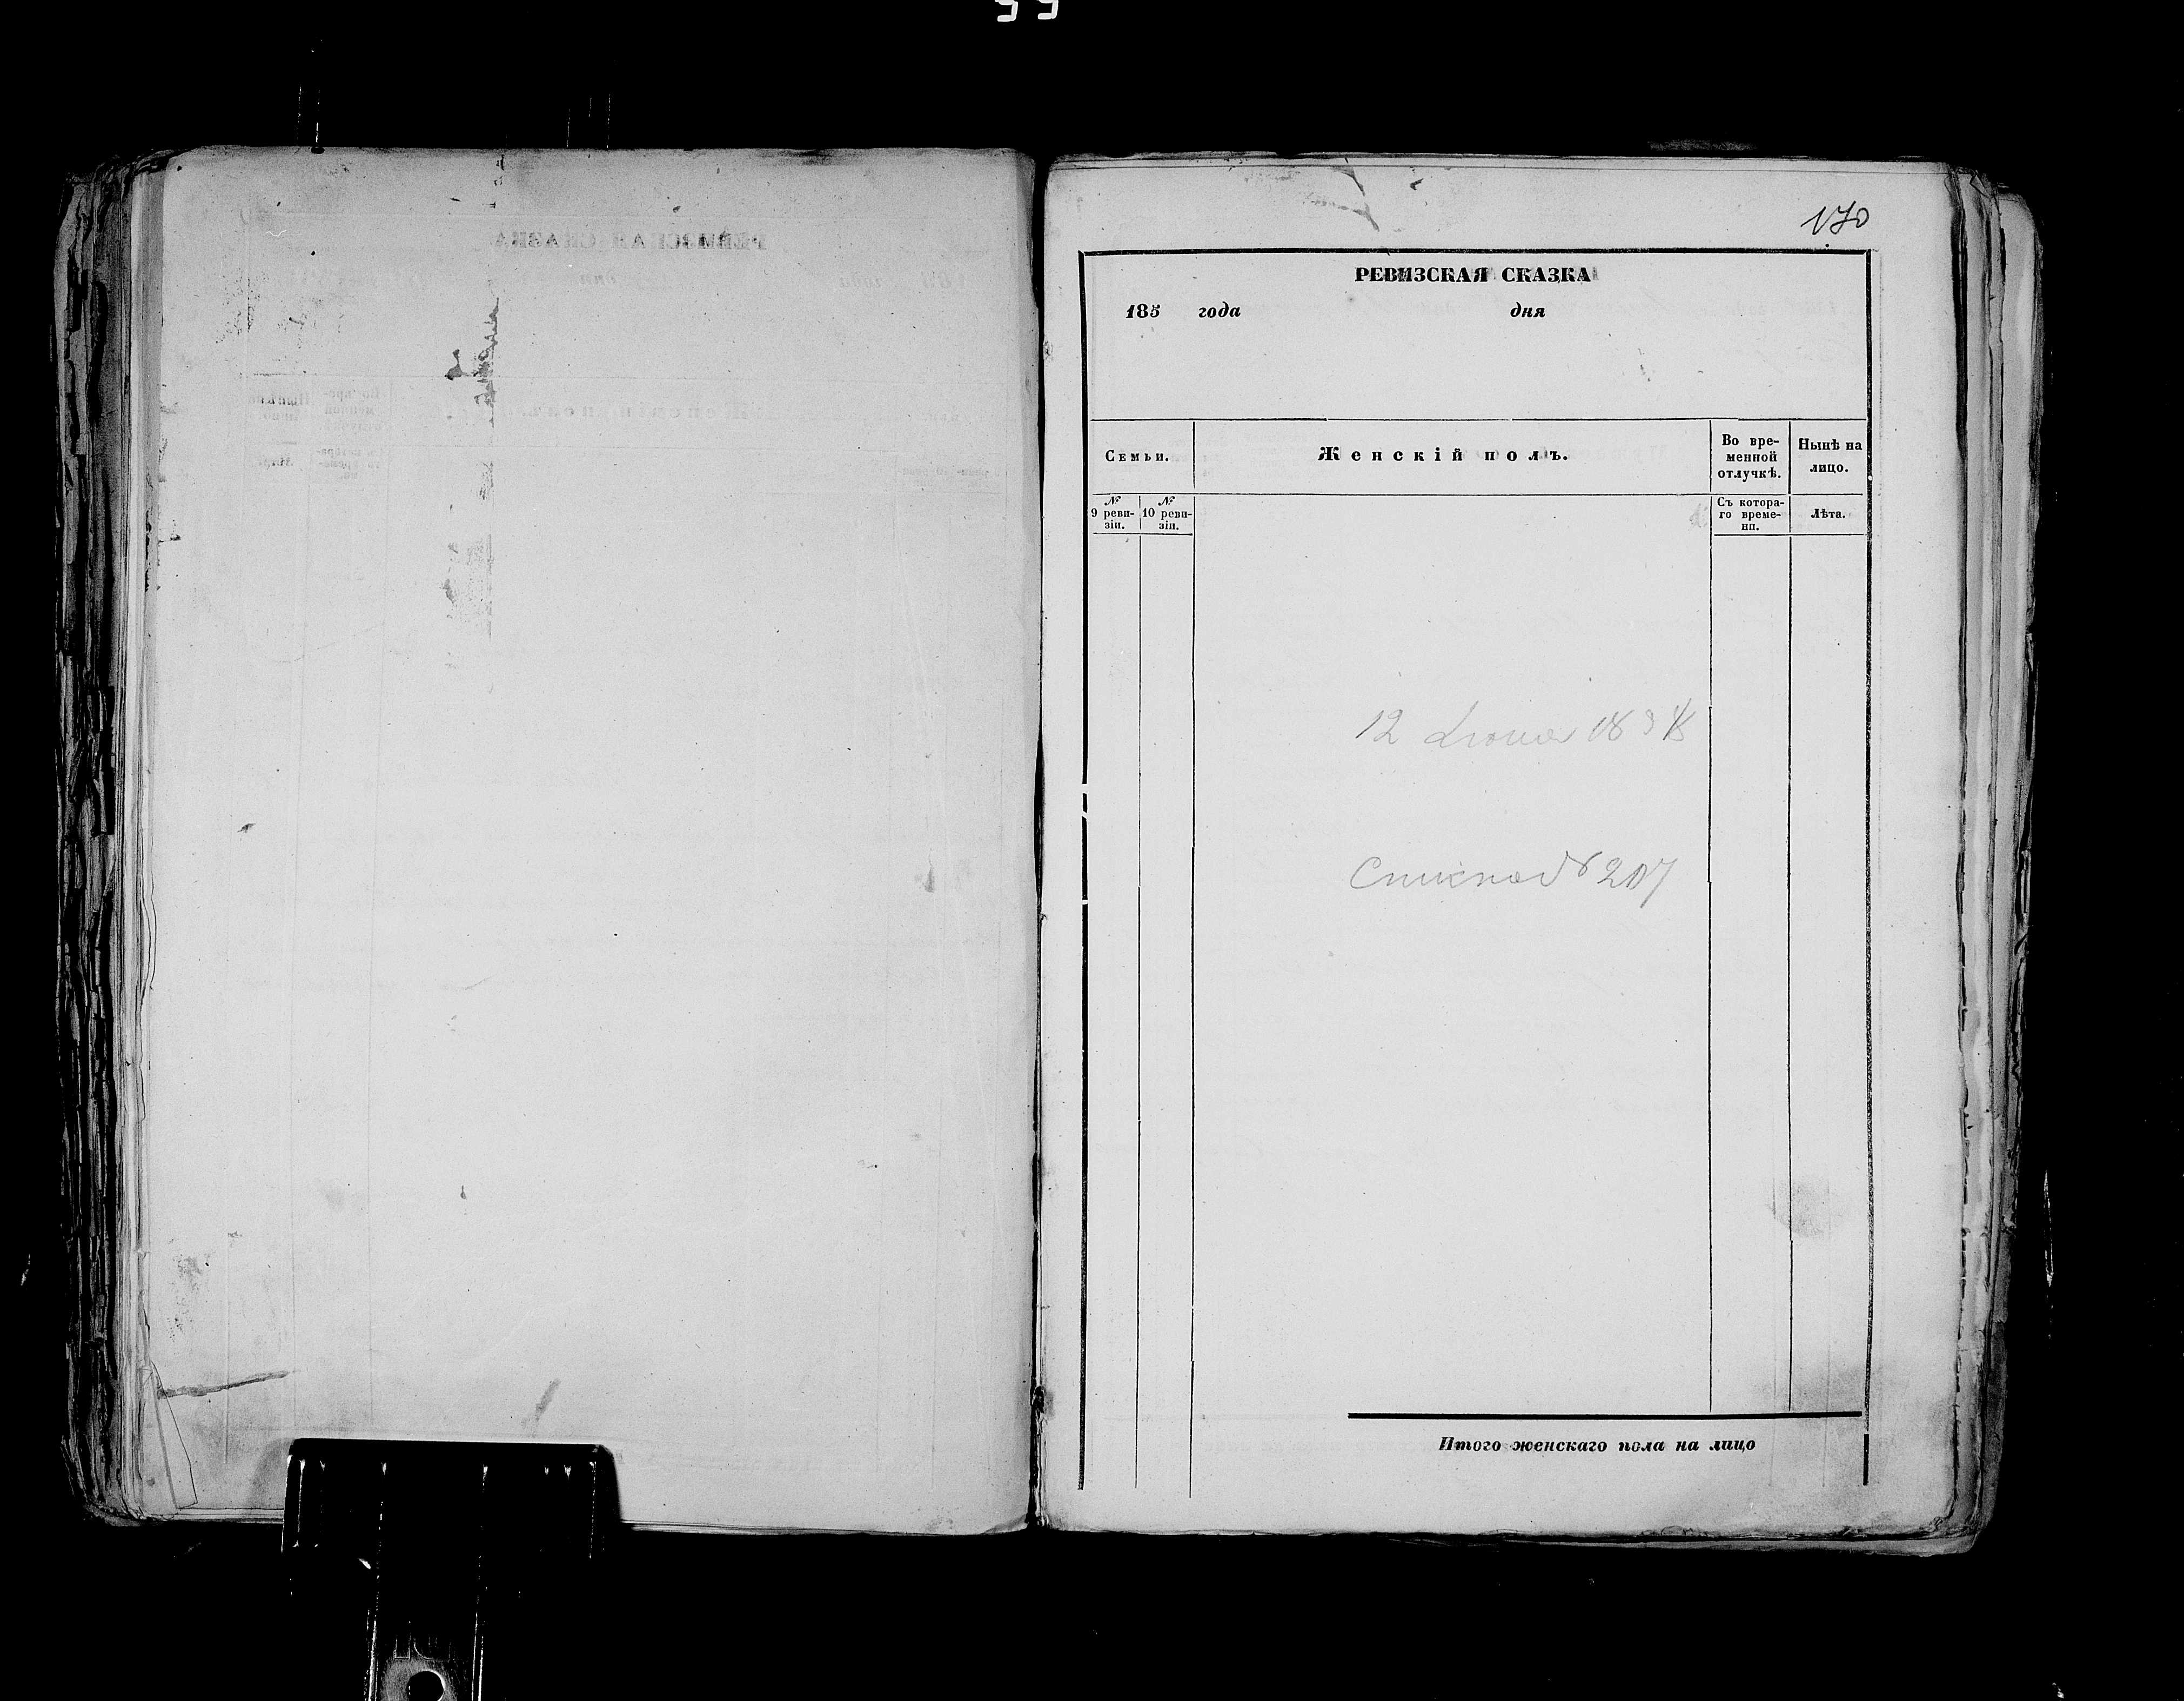 170
РЕВИЗСКАЯ СКАЗКА
185 года дня
Семьи.
Женскій полъ.
Во вре-
менной
отлучкѣ.
Нынѣ на
лицо.
№
9 реви-
зіи.
№
10 реви-
зіи.
Съ котора-
го време-
ни.
Лѣта.
12
№ 207
Итого женскаго пола на лицо